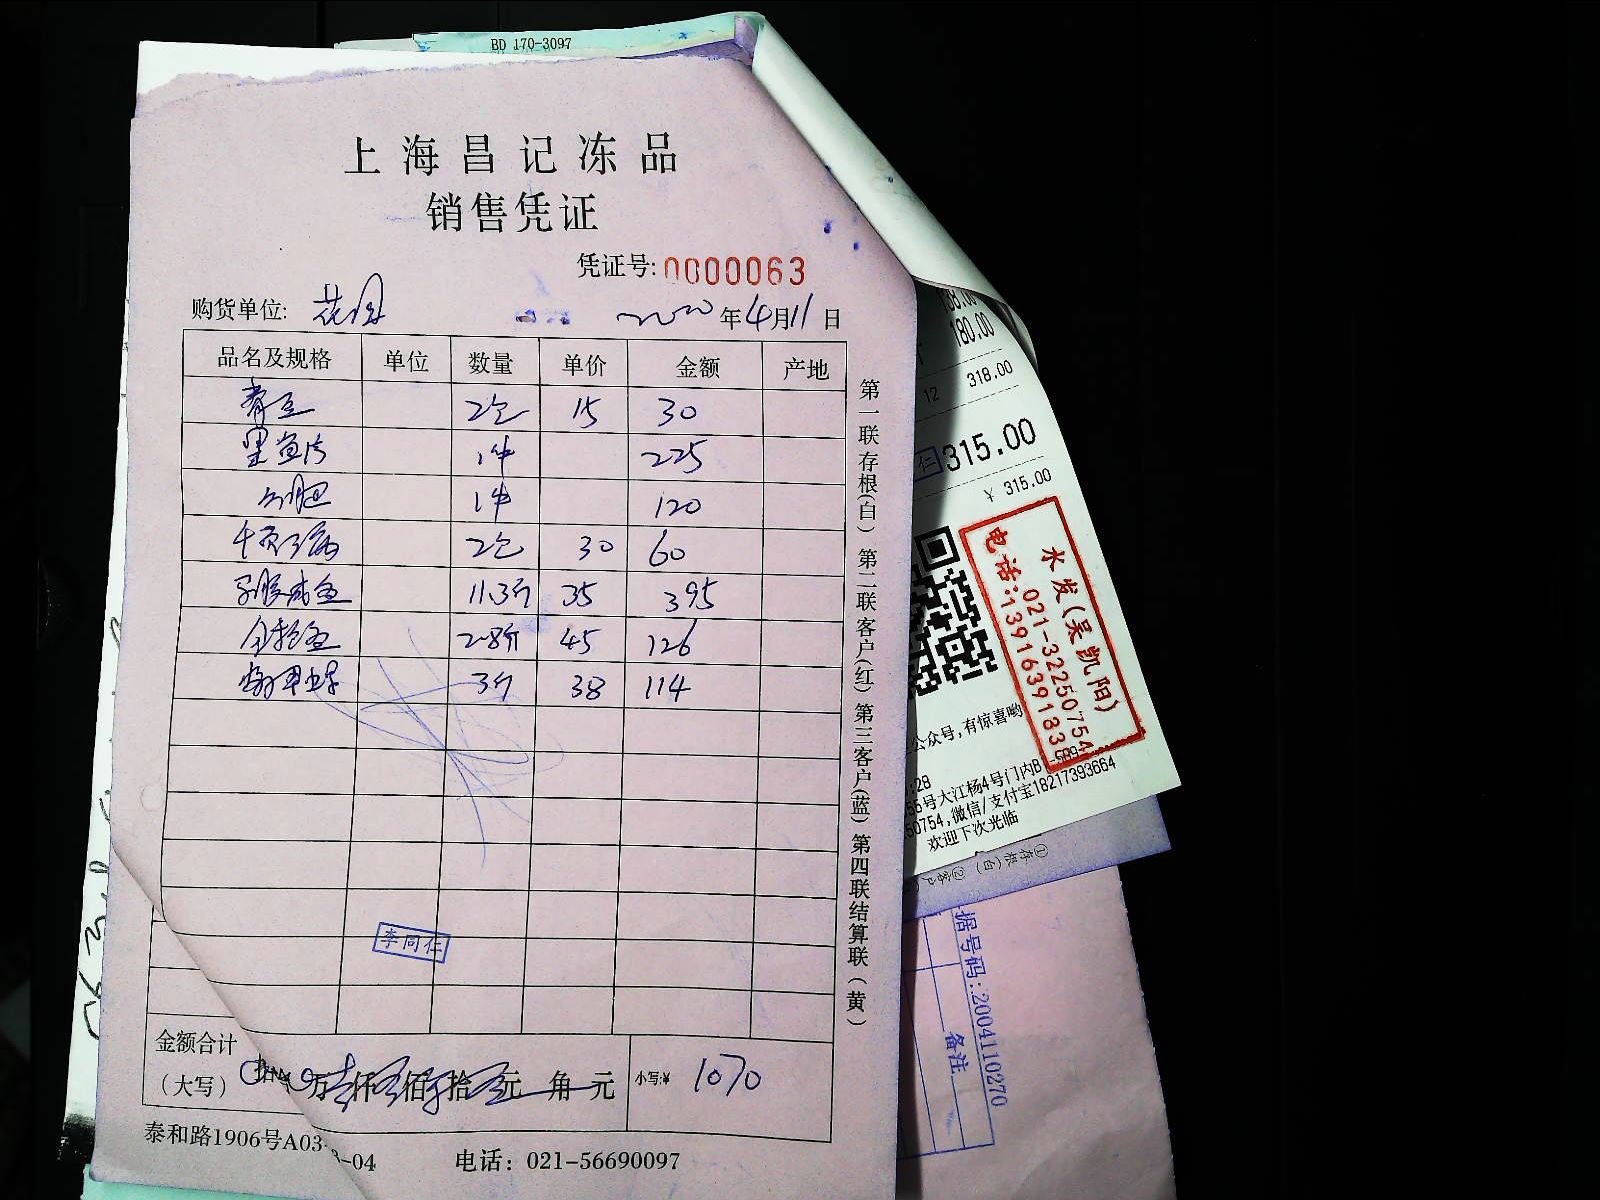 BD 170-3097
上海昌记冻品
销售凭证
凭证号: 0000063
购货单位: 花月 2020年4月11日
品名及规格 单位 数量 单价 金额 产地
青豆 2包 15 30
黑鱼片 1件 225
1件 120
千页豆腐 2包 30 60
11.3斤 35 395
2.8斤 45 126
3斤 38 114
李同仁
金额合计
(大写) 万 仟 佰 拾 元 角 元 小写:¥ 1070
泰和路1906号A03 -04
电话: 021-56690097
第一联存根(白) 第二联客户(红) 第三客户(蓝) 第四联结算联(黄)
180.00
12 318.00
仁 315.00
¥ 315.00
水发(吴凯阳)
电话: 021-32250754
13916391833
公众号,有惊喜哟
:28
55号大江杨4号门内B
50754,微信/支付宝18217393664
欢迎下次光临
①存根(白) ②客户
据号码:2004110270
备注